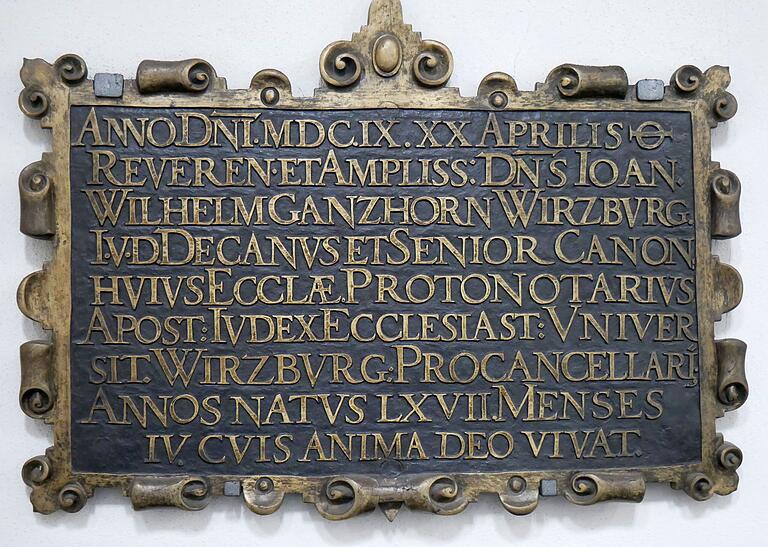 ANNO DN̄I. MDCIX. XX APRILIS
REVEREN. ET AMPLISS: DN̄S IOAN.
WILHELM GANZHORN WIRZBVRG.
I.V.D DECANVS ET SENIOR CANON
HVIVS ECCLÆ. PROTONOTARIVS
APOST: IVDEX ECCLESIAST: VNIVER
SIT. WIRZBVRG: PROCANCELLARĮ.
ANNOS NATVS LXVII. MENSES
IV. CVIS ANIMA DEO VIVAT.